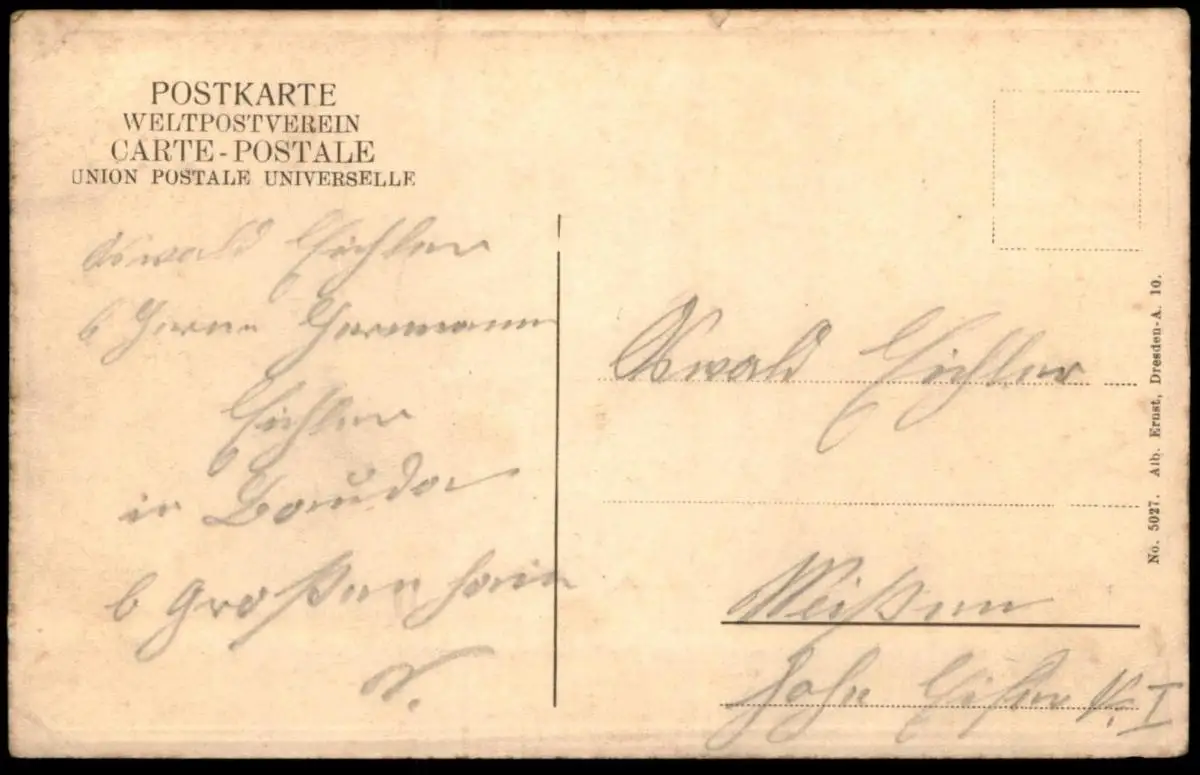 POSTKARTE
WELTPOSTVEREIN
CARTE-POSTALE
UNION POSTALE UNIVERSELLE
Oswald Eichler
b Herrn Hermann
Eichler
in Bauda
b Großenhain
Oswald Eichler
Meißen
Hohe Eifer
No. 5027. Alb. Ernst, Dresden-A. 10.